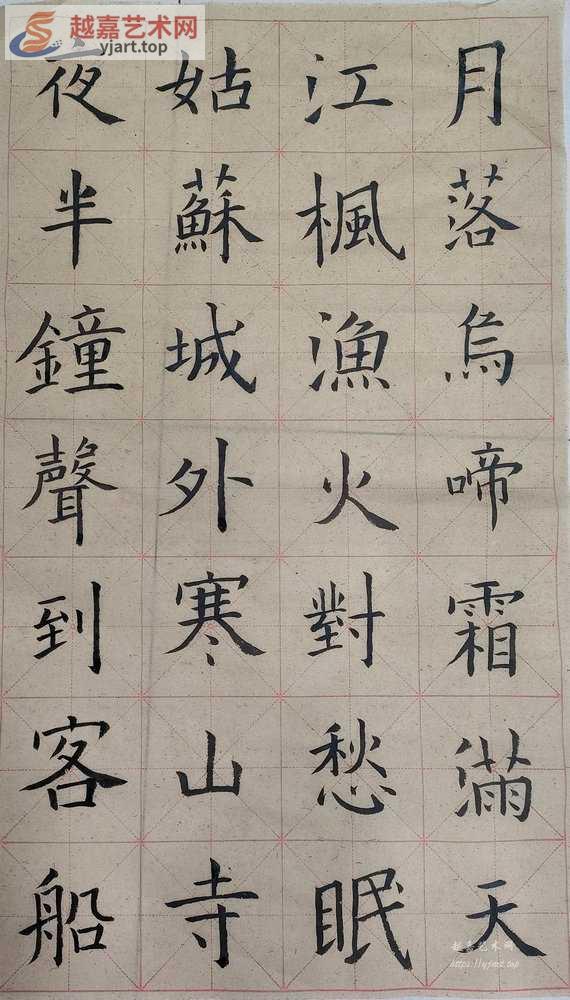 月落烏啼霜滿天
江楓漁火對愁眠
姑蘇城外寒山寺
夜半鐘聲到客船
越嘉艺术网
yjart.top
越嘉艺术网
https://yjart.top